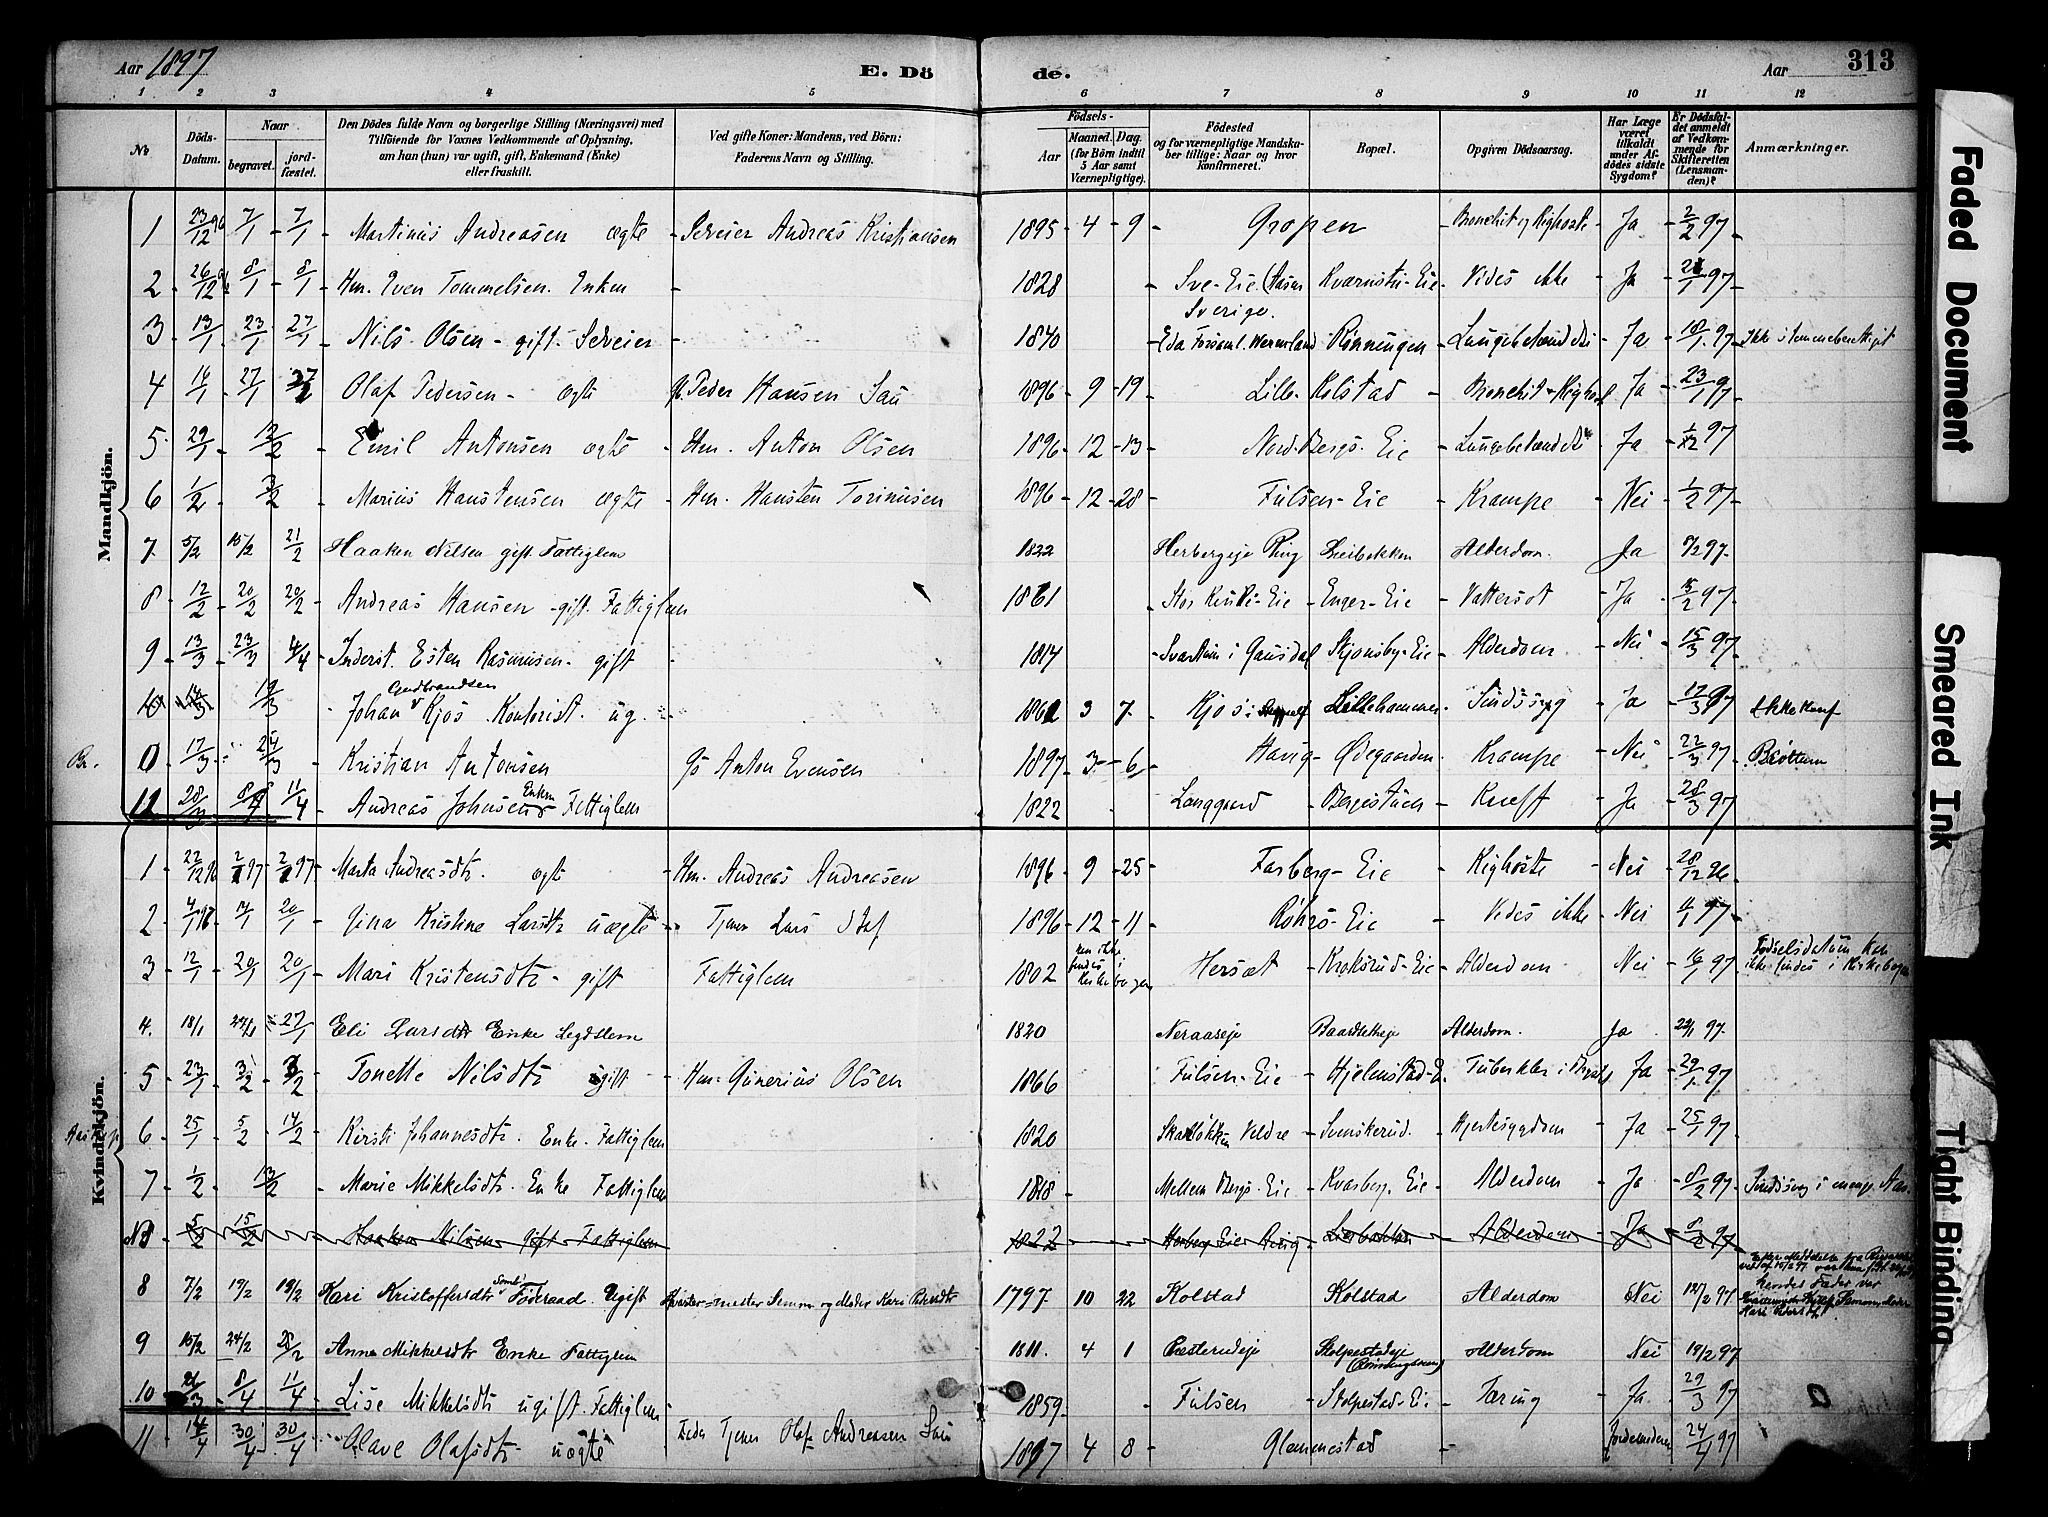 Aar 1897
E. Döde.
Aar
313
1 2 3 4 5 6 7 8 9 10 11 12
No
Döds-Datum.
Naar
begravet.
jordfæstet.
Den Dödes fulde Navn og borgerlige Stilling (Næringsvei) med
Tilföiende for Voxnes Vedkommende af Oplysning,
om han (hun) var ugift, gift, Enkemand (Enke)
eller fraskilt.
Ved gifte Koner: Mandens, ved Börn:
Faderens Navn og Stilling.
Födsels-
Aar
Maaned.
Dag.
(for Börn indtil
5 Aar samt
Værnepligtige).
Födested
og for værnepligtige Mandskaber tillige: Naar og hvor
konfirmeret.
Bopæl.
Opgiven Dödsaarsag.
Har Læge
været
tilkaldt
under Afdödes sidste
Sygdom?
Er Dödsfaldet anmeldt
af Vedkommende for
Skifteretten
(Lensmanden)?
Anmærkninger.
Mandkjön.
1 23/12 96 7/1 7/1 Martinus Andreasen ægte Selveier Andreas Kristiansen 1895 4 9 Gropen Bronchit og Kighoste Ja 2/2 97
2 26/12 96 8/1 8/1 Hm. Even Tommelsen. Enkem 1828 Sve-Eie Kværnstu-Eie Vides ikke Ja 97
3 13/1 23/1 27/1 Nils Olsen gift Selveier 1840 Sverige. Eda Forsaml. Wermland Rønningen Lungebetændelse Ja 18/1 97 Ikke stemmeberettiget
4 14/1 27/1 27/1 Olaf Pedersen ægte Peder Hansen Sau 1896 9 19 Lille-Kolstad Bronchit Kighost Ja 23/1 97
5 29/1 13/2 Emil Antonsen ægte Hm. Anton Olsen 1896 12 13 Nord-Bergs. Eie Lungebetændelse Ja 97
6 1/2 3/2 Marius Hanstensen ægte Hm. Hansten Torinusen 1896 12 28 Fulsen-Eie Krampe Nei 1/2 97
7. 5/2 15/2 21/2 Haaken Nilsen gift Fattiglem 1822 Herbergeje Ring Alderdom. Ja 8/2 97
8 12/2 20/2 20/2 Andreas Hansen gift Fattiglem 1861 Enger-Eie Vattersot Ja 15/2 97
9 13/3 23/3 4/4 Inderst. Esten Rasmusen gift 1817 Svartum i Gausdal Skjonsby-Eie Alderdom Nei 15/3 97
10 14/3 19/3 Johan Gudbrandsen Kjos Kontorist ug. 1862 3 7 Kjos i Lillehammer Sindssyg Ja 17/3 97 Ikke konf
Br. 17/3 24/3 Kristian Antonsen Anton Evensen 1897 3 6 Havig Ødegaarden Krampe Nei 22/3 97 Brøttum
11 28/3 8/4 11/4 Andreas Johnsen Enkem Fattiglem 1822 Langgaard Kræft Ja 28/3 97
Kvindekjön.
1 22/12 96 2/1 97 2/1 97 Marta Andreasdtr. ægte Hm. Andreas Andreasen 1896 9 25 Farberg-Eie Kighoste Nei 28/12 96
2 4/1 97 20/1 Gina Kristine Larsdtr uægte Tjener Lars Olaf 1896 12 11 Rohrs-Eie Vides ikke Nei 97
3 12/1 20/1 20/1 Mari Kristensdtr gift Fattiglem 1802 kan ikke findes i Kirkebogen Hersæt Kroksrud-Eie Alderdom Nei 16/1 97 Fødselsdatum kan
ikke findes i Kirkebogen
4. 18/1 27/1 Eli Larsdtr Enke Legdslem 1820 Neraaseje Alderdom. Ja 22/1 97.
5 23/1 3/2 3/2 Tonette Nilsdtr ugift Hm. Gunerius Olsen 1866 Fulsen-Eie Hjelmstad-E. Tuberkler i Ja 29/1 97
6 25/1 5/2 14/2 Kirsti Johannesdtr. Enke. Fattiglem 1820 Skarløkken Veldre Svenskerud. Hjertesygdom Ja 25/1 97
7 1/2 13/2 Marie Mikkelsdtr. Enke Fattiglem 1818 Mellem Bergs-Eie Kvarberg. Eie Alderdom Ja 8/2 97 Sindssyg i mange Aar.
N8 5/2 15/2 Haaken Nilsen gift Fattiglem 1822 Herberg Eie Ring Alderdom Ja 8/2 97
8 7/2 19/2 19/2 Kari Kristoffersdtr Føderaad. Ugift Kvartermester og Moder Kari Pedersdtr 1797 10 22 Kolstad Kolstad Alderdom Nei 12/2 97 hendes Fader var
9 15/2 24/2 28/2 Anna Mikkelsdtr Enke Fattiglem 1811. 4 1 Stolpestadeje Alderdom Nei 19/2 97
10 26/3 8/4 11/4 Lise Mikkelsdtr ugift. Fattiglem 1859 Fulsen Stolpestad-Eie Tæring Ja 29/3 97
11 14/4 30/4 30/4 Olave Olafsdtr uægte Fader Tjener Olaf Andreasen Sau 1897 4 8 Glemmestad Jordemoderen 24/4 97
Faded Document
Smeared Ink
Tight Binding